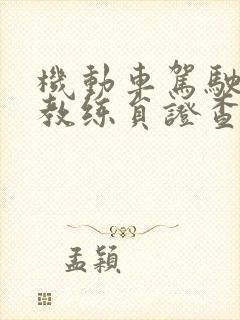 機動車駕駛
教練員證查
孟穎